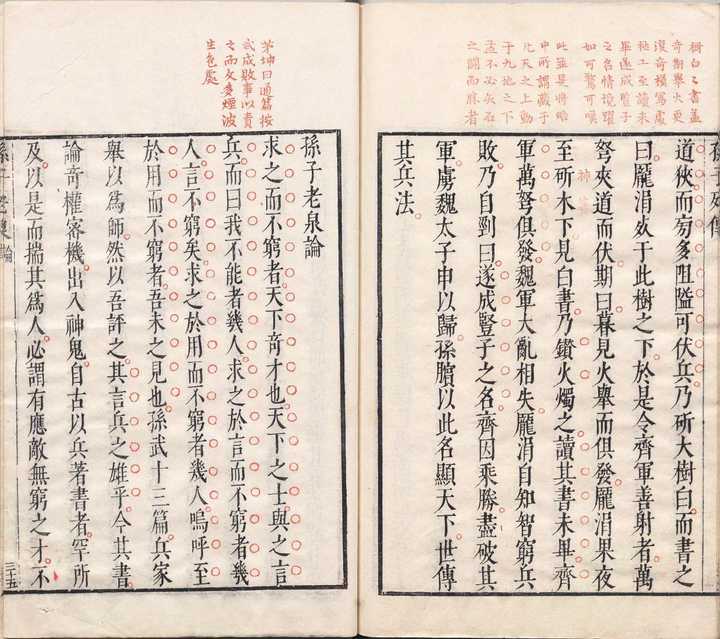 樹白之書蓋
奇期舉火更
深奇模寫處
極工至讀未
畢遂成豎子
之名情境躍
如可驚可嘆
此雖是將略
中所謂藏于
九天之上動
于九地之下
道狹而旁多阻隘可伏兵乃斫大樹白而書之
曰龐涓死于此樹之下於是令齊軍善射者萬
弩夾道而伏期曰暮見火舉而俱發龐涓果夜
至斫木下見白書乃鑽火燭之讀其書未畢齊
軍萬弩俱發魏軍大亂相失龐涓自知智窮兵
敗乃自剄曰遂成豎子之名齊因乘勝盡破其
軍虜魏太子申以歸孫臏以此名顯天下世傳
其兵法
茅坤曰通篇按
武成敗事以責
之而文多煙波
生色處
孫子老泉論
求之而不窮者天下奇才也天下之士與之言
兵而曰我不能者幾人求之於言而不窮者幾
人言不窮矣求之於用而不窮者幾人嗚呼至
於用而不窮者吾未之見也孫武十三篇兵家
舉以為師然以吾評之其言兵之雄乎今其書
論奇權密機出入神鬼自古以兵著書者罕所
及以是而揣其為人必謂有應敵無窮之才不